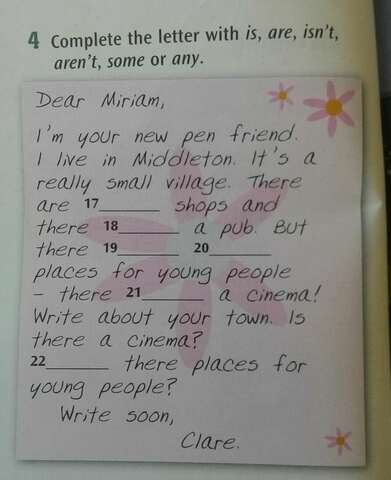 4 Complete the letter with is, are, isn't,
aren't, some or any.
Dear Miriam,
I'm your new pen friend.
I live in Middleton. It's a
really small village. There
are 17________ shops and
there 18________ a pub. But
there 19________ 20________
places for young people
– there 21________ a cinema!
Write about your town. Is
there a cinema?
22________ there places for
young people?
Write soon,
Clare.